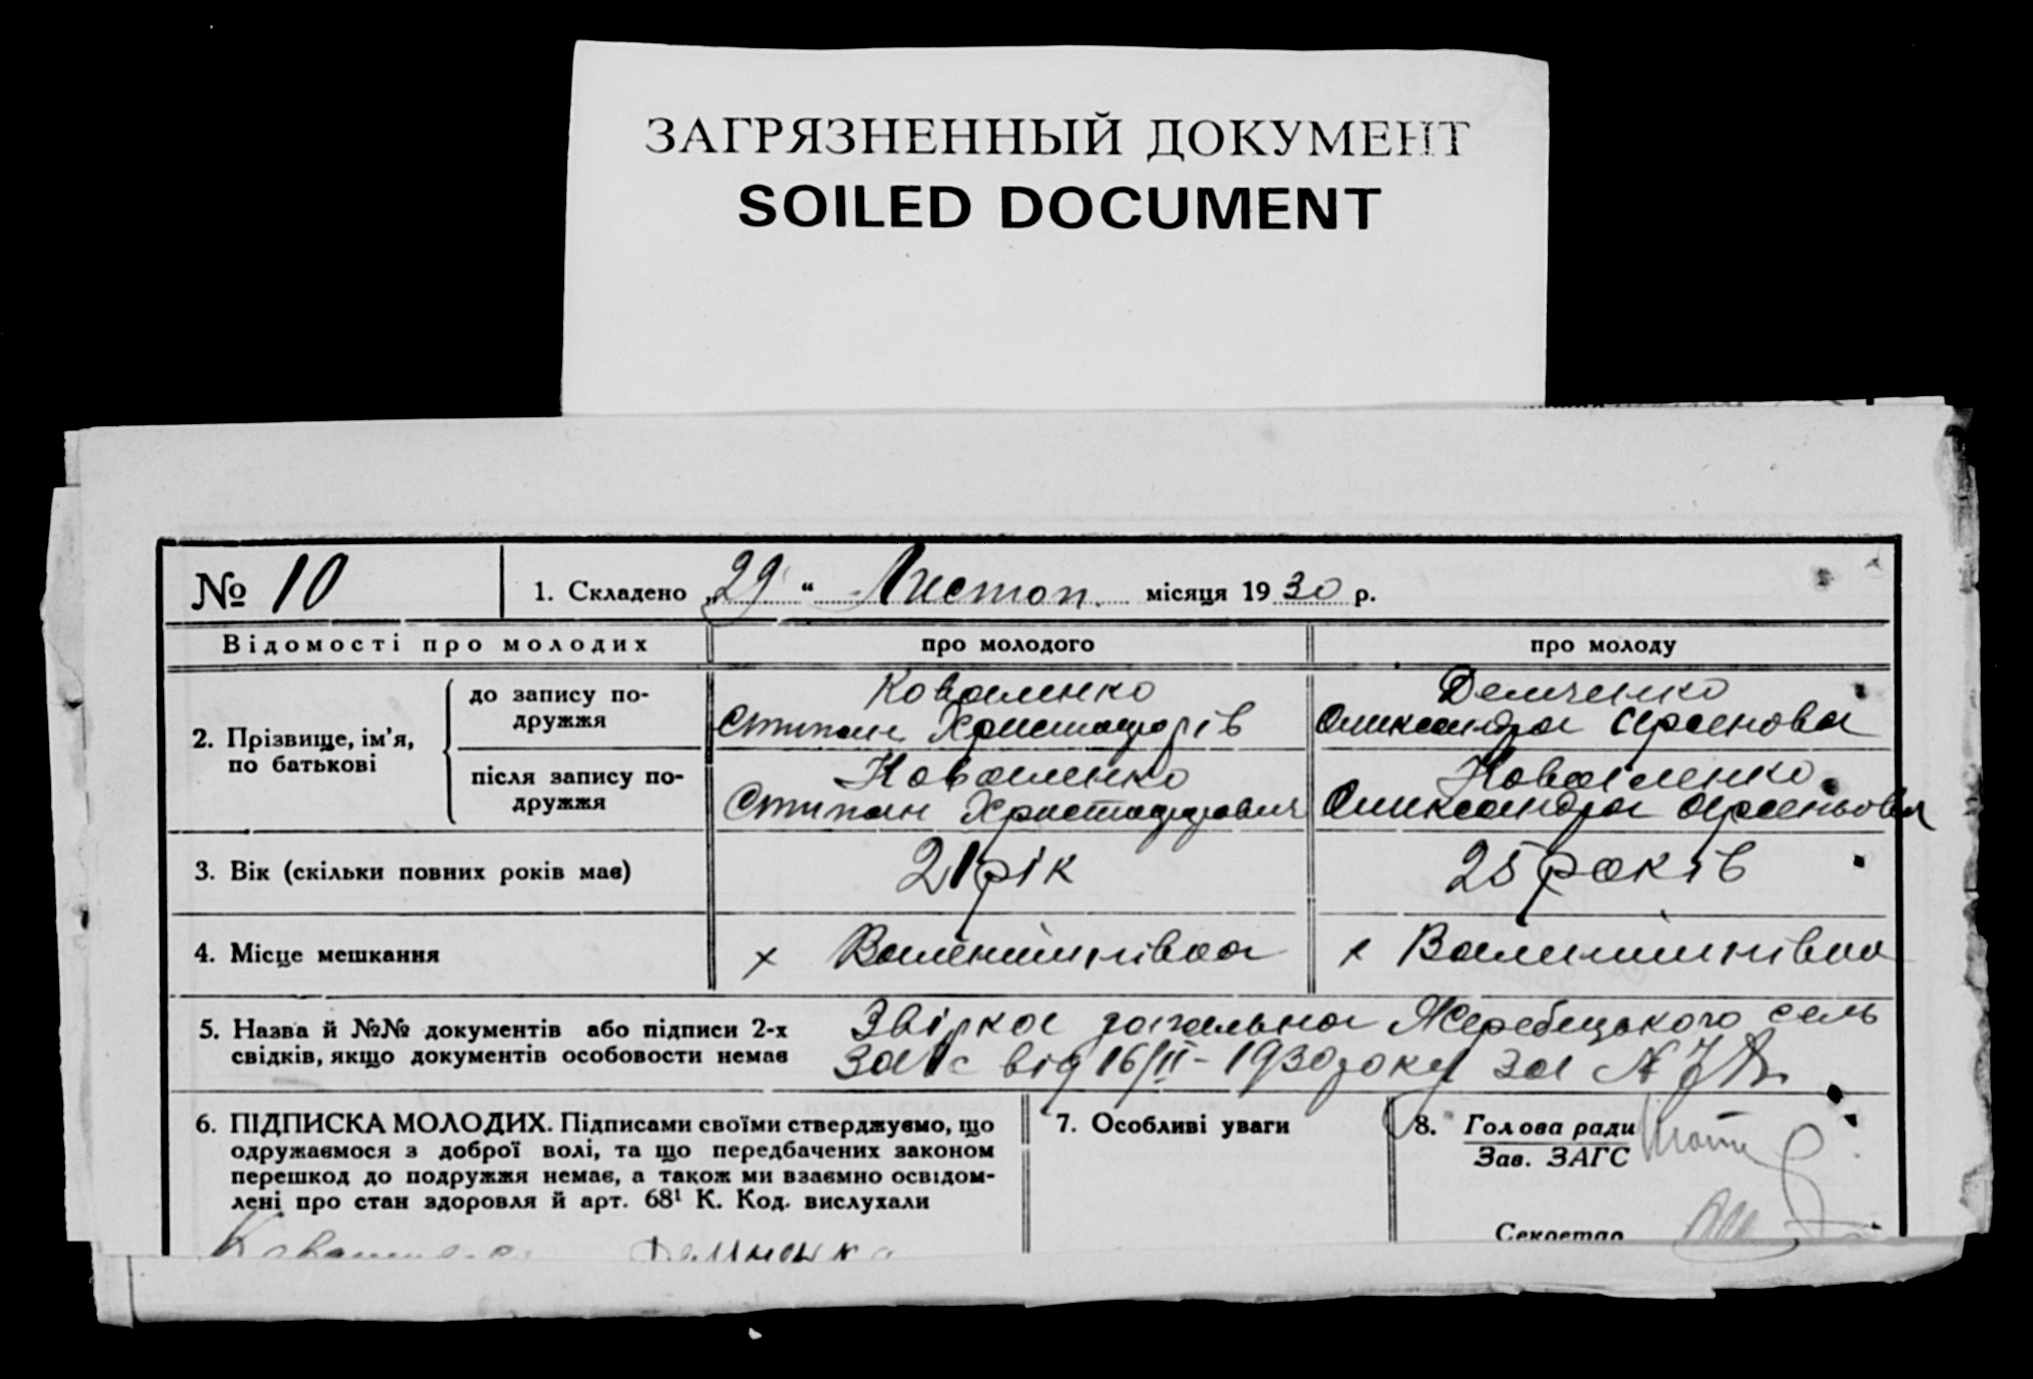 ЗАГРЯЗНЕННЫЙ ДОКУМЕНТ
SOILED DOCUMENT
№ 10
1. Складено „29“ Листоп. місяця 1930 р.
Відомості про молодих
про молодого
про молоду
2. Прізвище, ім’я, по батькові
до запису по-
дружжя
Коваленко
Стипан Христофорів
Демченко
Оликсандра Арсенова
після запису по-
дружжя
Коваленко
Стипан
Коваленко
Оликсандра Арсеньовна
3. Вік (скільки повних років має)
21 рік
25 років
4. Місце мешкання
х Валентинівка
х Валентинівка
5. Назва й №№ документів або підписи 2-х
свідків, якщо документів особовости немає
Звірка загальна Жеребецького сель
загс від 16/II-1930 року за №
6. ПІДПИСКА МОЛОДИХ. Підписами своїми стверджуємо, що
одружаємося з доброї волі, та що передбачених законом
перешкод до подружжя немає, а також ми взаємно освідом-
лені про стан здоровля й арт. 68¹ К. Код. вислухали
7. Особливі уваги
8. Голова ради
Зав. ЗАГС
Секретар